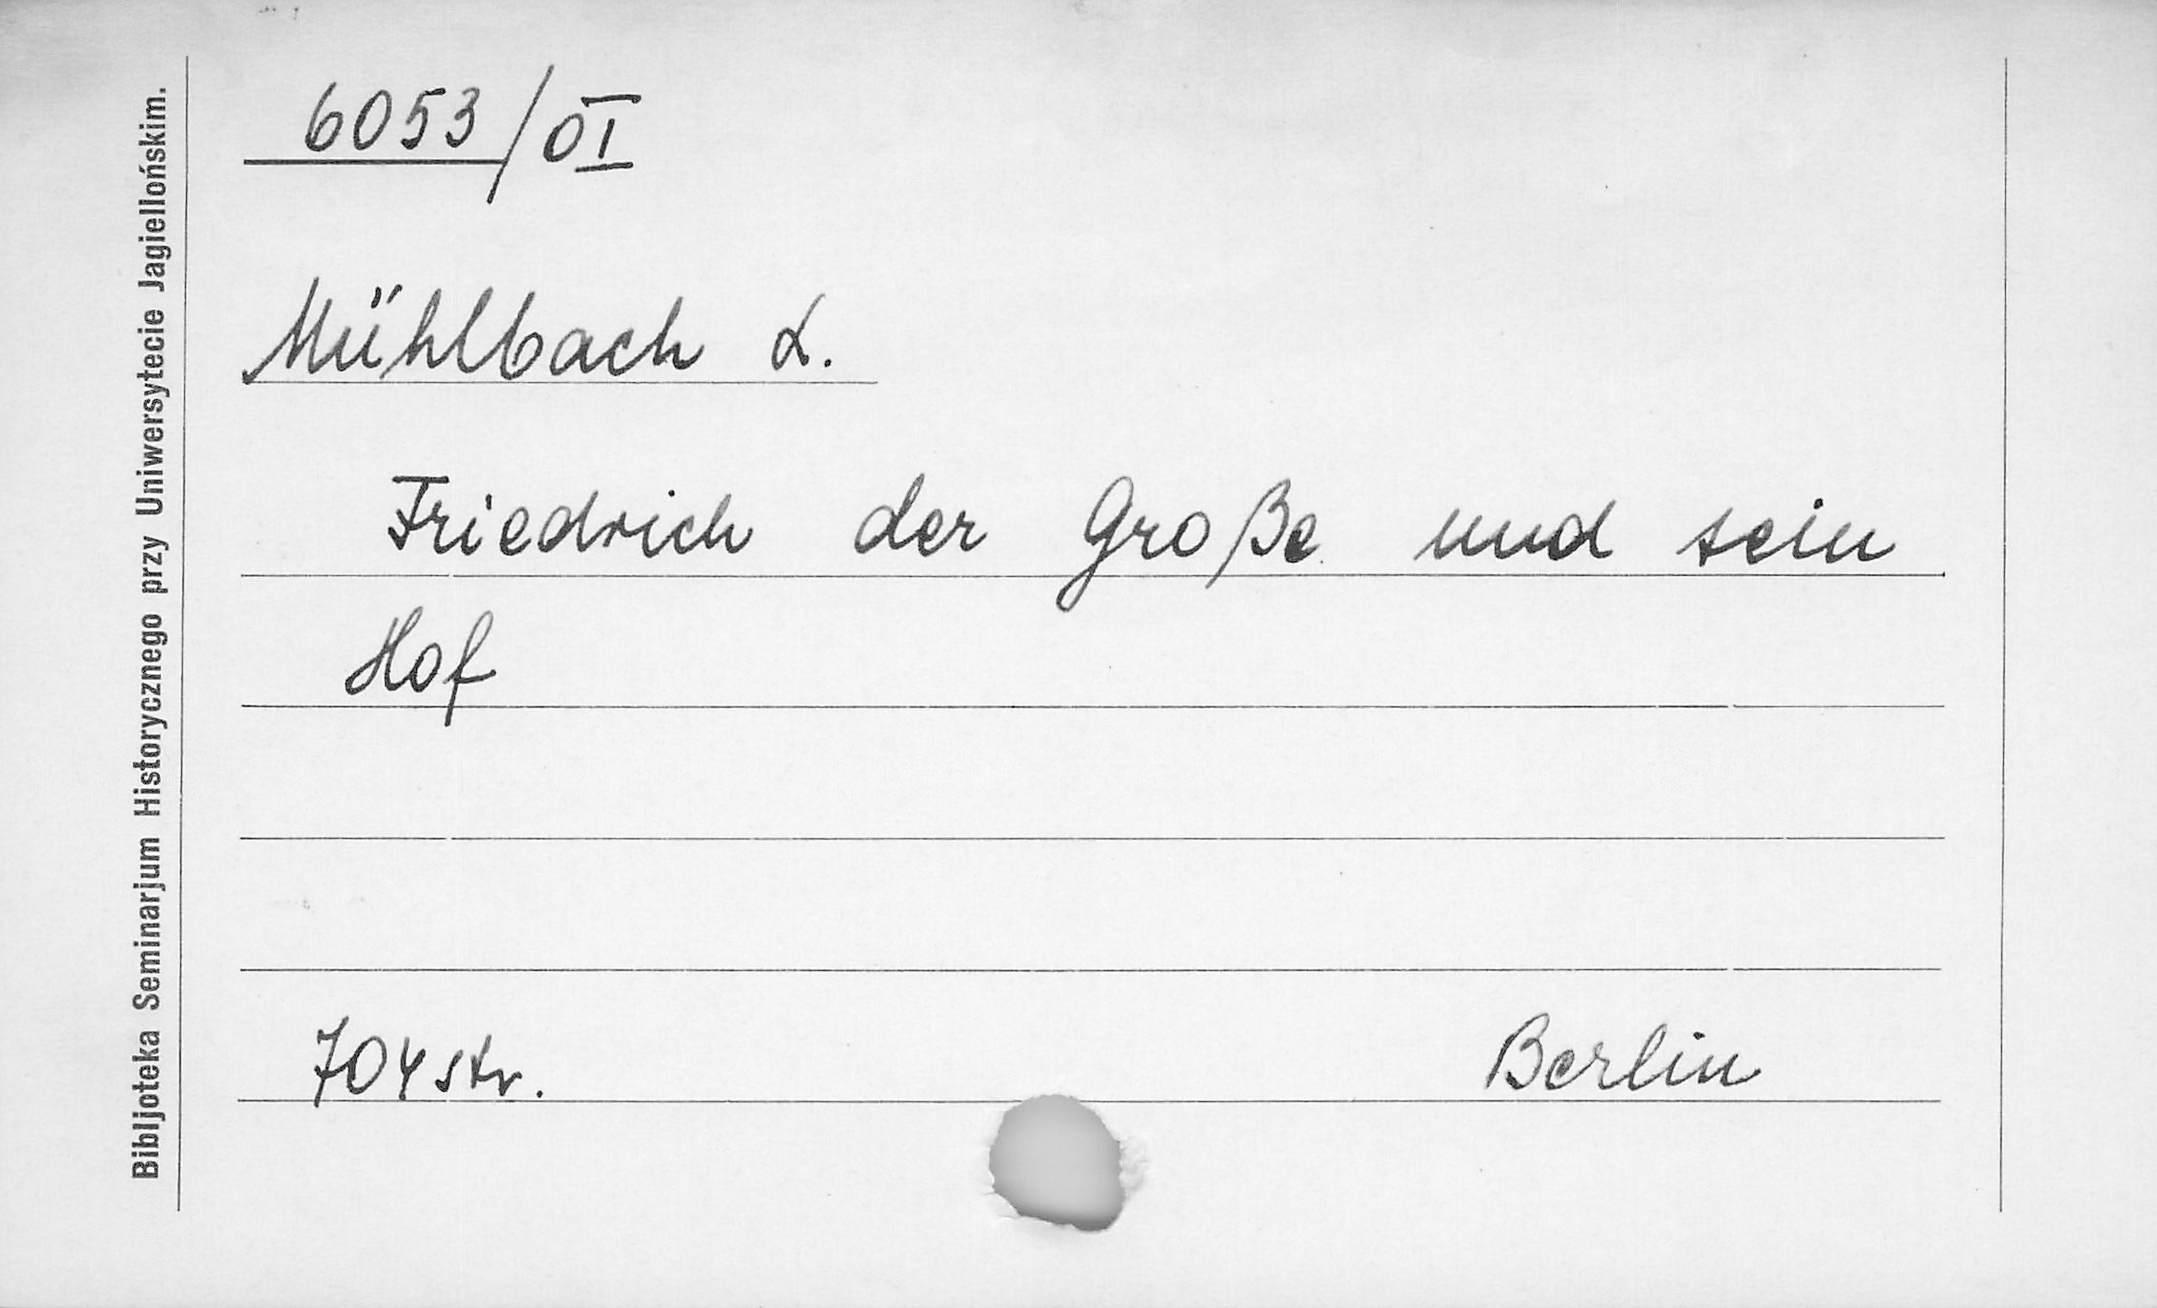 Bibljoteka Seminarjum Historycznego przy Uniwersytecie Jagiellońskim.
6053/OI
Mühlbach L.
Friedrich der Große und sein
Hof
704 str.
Berlin